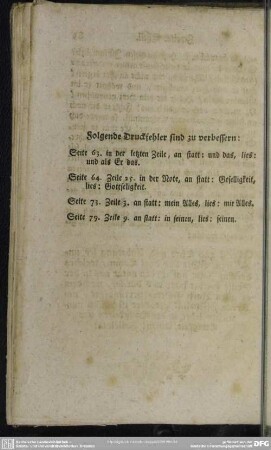 Folgende Druckfehler sind zu verbessern:
Seite 63. in der letzten Zeile, an statt: und das, lies:
und als Er das.
Seite 64. Zeile 25. in der Note, an statt: Geselligkeit,
lies: Gottseligkeit.
Seite 71. Zeile 3. an statt: mein Alles, lies: mir Alles.
Seite 79. Zeile 9. an statt: in seinen, lies: seinen.